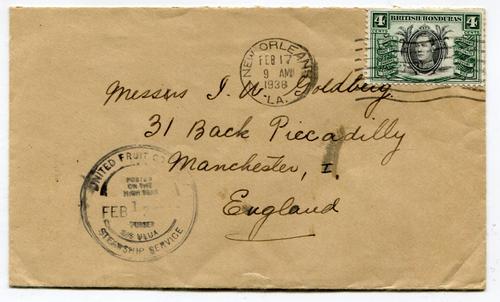 4c BRITISH HONDURAS 4c
NEW ORLEANS
FEB 17
9 AM
1938
LA.
Messers J. W. Goldberg.
31 Back Piccadilly
Manchester, 1.
England
UNITED FRUIT
POSTED
ON THE
HIGH SEAS
FEB 1
PURSER
S/S ULUA
STEAMSHIP SERVICE